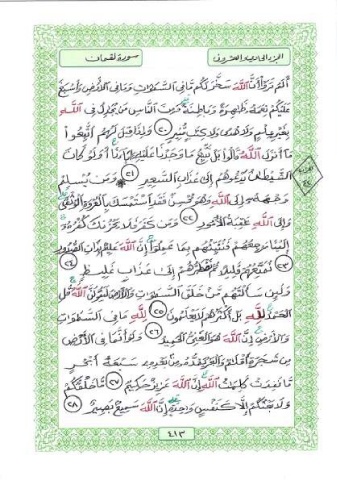 الجزء الحادي والعشرون سورة لقمان
أَلَمْ تَرَوْا أَنَّ اللَّهَ سَخَّرَ لَكُم مَّا فِي السَّمَاوَاتِ وَمَا فِي الْأَرْضِ وَأَسْبَغَ
عَلَيْكُمْ نِعَمَهُ ظَاهِرَةً وَبَاطِنَةً وَمِنَ النَّاسِ مَن يُجَادِلُ فِي اللَّهِ
بِغَيْرِ عِلْمٍ وَلَا هُدًى وَلَا كِتَابٍ مُّنِيرٍ ٢٠ وَإِذَا قِيلَ لَهُمُ اتَّبِعُوا
مَا أَنزَلَ اللَّهُ قَالُوا بَلْ نَتَّبِعُ مَا وَجَدْنَا عَلَيْهِ آبَاءَنَا أَوَلَوْ كَانَ
الشَّيْطَانُ يَدْعُوهُمْ إِلَى عَذَابِ السَّعِيرِ ٢١ وَمَن يُسْلِمْ
وَجْهَهُ إِلَى اللَّهِ وَهُوَ مُحْسِنٌ فَقَدِ اسْتَمْسَكَ بِالْعُرْوَةِ الْوُثْقَى
وَإِلَى اللَّهِ عَاقِبَةُ الْأُمُورِ ٢٢ وَمَن كَفَرَ فَلَا يَحْزُنكَ كُفْرُهُ
إِلَيْنَا مَرْجِعُهُمْ فَنُنَبِّئُهُم بِمَا عَمِلُوا إِنَّ اللَّهَ عَلِيمٌ بِذَاتِ الصُّدُورِ
٢٣ نُمَتِّعُهُمْ قَلِيلًا ثُمَّ نَضْطَرُّهُمْ إِلَى عَذَابٍ غَلِيظٍ ٢٤
وَلَئِن سَأَلْتَهُم مَّنْ خَلَقَ السَّمَاوَاتِ وَالْأَرْضَ لَيَقُولُنَّ اللَّهُ قُلِ
الْحَمْدُ لِلَّهِ بَلْ أَكْثَرُهُمْ لَا يَعْلَمُونَ ٢٥ لِلَّهِ مَا فِي السَّمَاوَاتِ
وَالْأَرْضِ إِنَّ اللَّهَ هُوَ الْغَنِيُّ الْحَمِيدُ ٢٦ وَلَوْ أَنَّمَا فِي الْأَرْضِ
مِن شَجَرَةٍ أَقْلَامٌ وَالْبَحْرُ يَمُدُّهُ مِن بَعْدِهِ سَبْعَةُ أَبْحُرٍ
مَّا نَفِدَتْ كَلِمَاتُ اللَّهِ إِنَّ اللَّهَ عَزِيزٌ حَكِيمٌ ٢٧ مَّا خَلْقُكُمْ
وَلَا بَعْثُكُمْ إِلَّا كَنَفْسٍ وَاحِدَةٍ إِنَّ اللَّهَ سَمِيعٌ بَصِيرٌ ٢٨
٤١٣